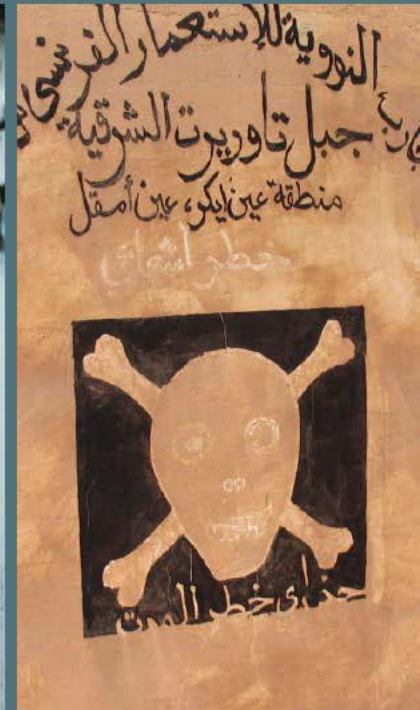 النووية للإستعمار الفرنسي
جبل تاوريرت الشرقية
منطقة عين إيكر، عين أمقل
خطر إشعاعي
حذاري خطر الموت